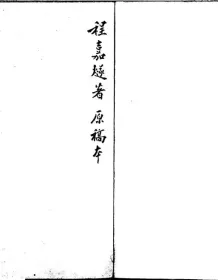 程嘉燧著 原稿本